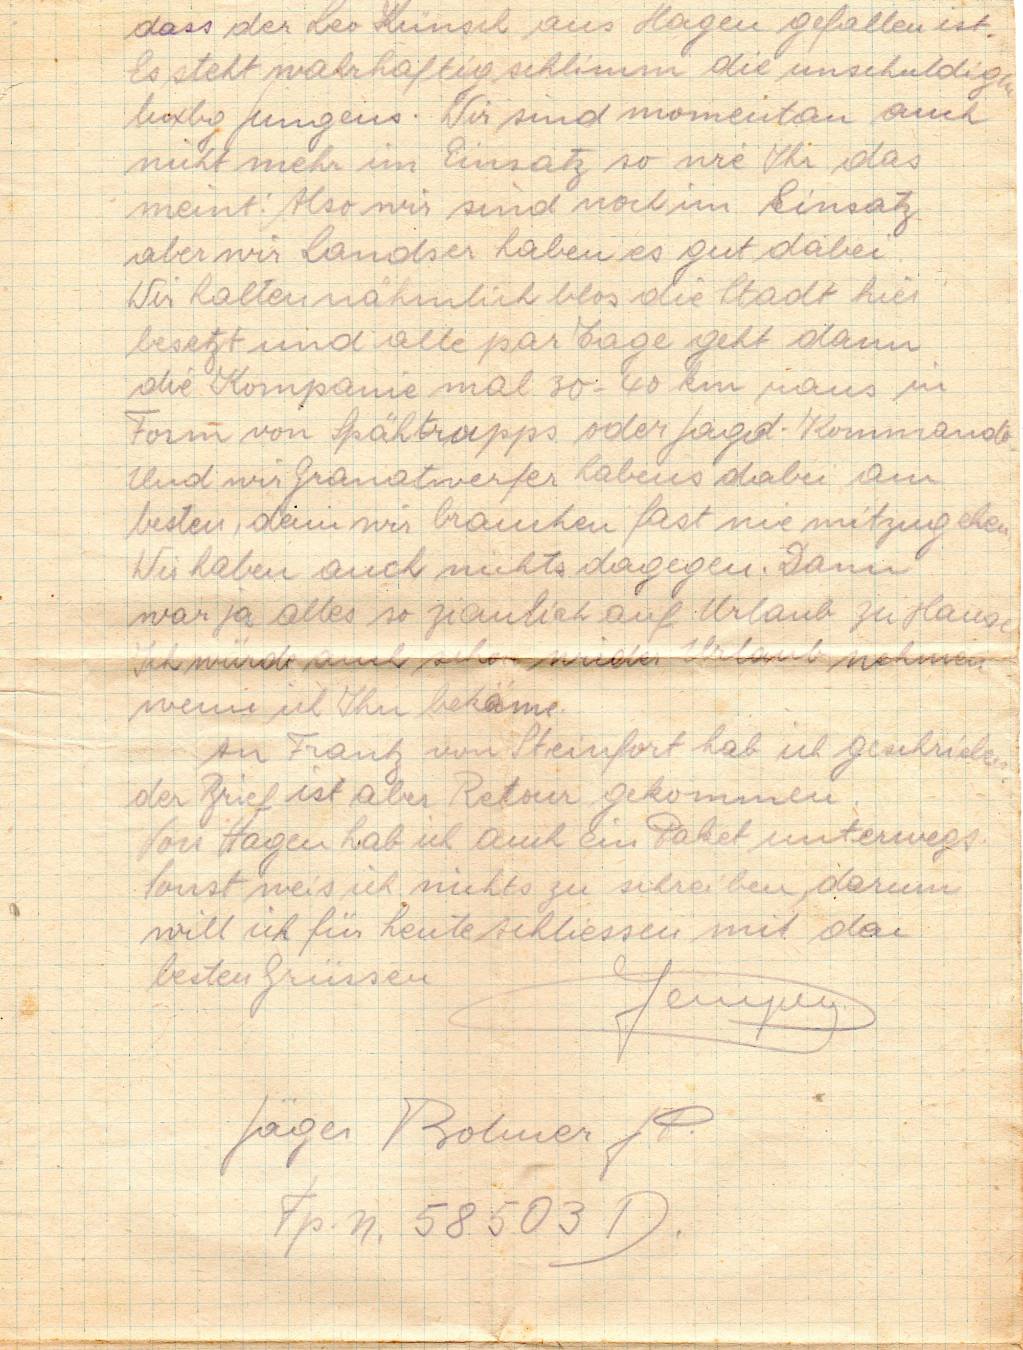 dass der Leo Künsch aus Hagen gefallen ist.
Es steht wahrhaftig schlimm die unschuldigen
luxbg Jungens. Wir sind momentan auch
nicht mehr im Einsatz so wie Ihr das
meint. Also wir sind noch im Einsatz
aber wir Landser haben es gut dabei.
Wir halten nähmlich blos die Stadt hier
besetzt und alle par Tage geht dann
die Kompanie mal 30-40 km raus in
Form von Spähtrupps oder Jagd-Kommando.
Und wir Granatwerfer habens dabei am
besten, denn wir brauchen fast nie mitzugehen
Wir haben auch nichts dagegen. Dann
war ja alles so ziemlich auf Urlaub zu Hause
Ich würde auch schon wieder Urlaub nehmen
wenn ich Ihn bekäme.
An Frantz von Steinfort hab ich geschrieben.
der Brief ist aber Retour gekommen.
Von Hagen hab ich auch ein Paket unterwegs.
Sonst weis ich nichts zu schreiben, darum
will ich für heute schliessen mit den
besten Grüssen
Jempy
Jäger Bohner J.P.
Fp.N. 58503 D.